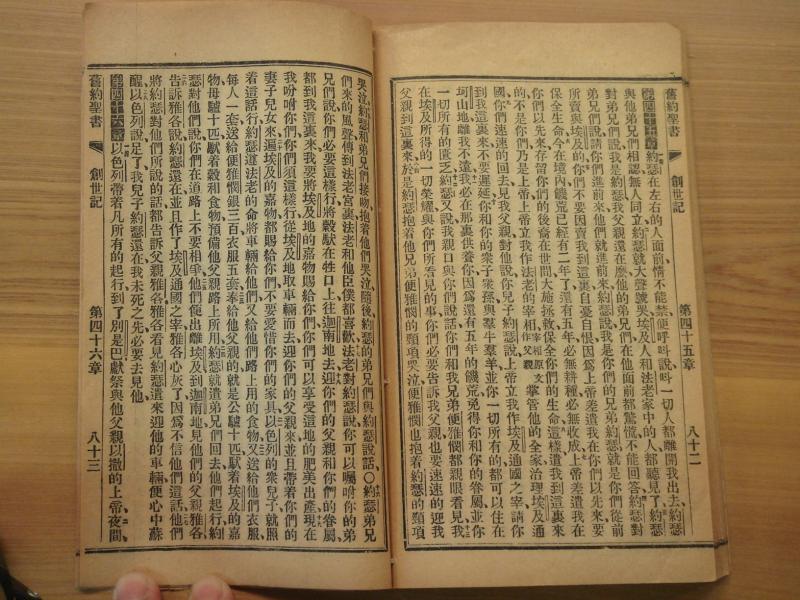 舊約聖書 創世記 第四十五章 八十二
第四十五章 約瑟在左右的人面前情不能禁便呼呌說呌一切人都離開我出去約瑟
與他弟兄們相認無人同立約瑟就大聲號哭埃及人和法老家中的人都聽見了約瑟
對弟兄們說我是約瑟我父親還在麽他的弟兄們在他面前都驚慌不能回答約瑟對
弟兄們說請你們進前來他們就進前來約瑟說我是你們的兄弟約瑟就是你們從前
所賣與埃及的你們不要因賣我到這裏自憂自恨因爲上帝差遣我在你們以先來要
保全生命今在境內饑荒已經有二年了還有五年必無耕種必無收成上帝差遣我在
你們以先來存留你們的後裔在世間大施拯救保全你們的生命這樣遣我到這裏來
的不是你們乃是上帝上帝立我作法老的宰相宰相原文作父親掌管他的全家治理埃及通
國你們速速的回去見我父親對他說你兒子約瑟說上帝立我作埃及通國之宰請你
到我這裏來不要遲延你和你的衆子衆孫與羣牛羣羊並你一切所有的都可以住在
坷山地離我不遠我必在那裏供養你因爲還有五年的饑荒免得你和你的眷屬並你
一切所有的匱乏約瑟又說我親口與你們說話你們和我兄弟便雅憫都親眼看見我
在埃及所得的一切榮耀與你們所看見的事你們必要告訴我父親也要速速的迎我
父親到這裏來於是約瑟抱着他兄弟便雅憫的頸項哭泣便雅憫也抱着約瑟的頸項
哭泣約瑟和弟兄們接吻抱着他們哭泣隨後約瑟的弟兄們與約瑟說話〇約瑟弟兄
們來的風聲傳到法老宮裏法老和他臣僕都喜歡法老對約瑟說你可以囑咐你的弟
兄們說你們必要這樣行將糓馱在牲口上往迦南地去迎你們的父親和你們的眷屬
都到我這裏來我要將埃及地的嘉物賜給你們你們可以享受這地的肥美出產現在
我吩咐你們你們須這樣行從埃及地取車輛而去迎你們的父親來並且帶着你們的
妻子兒女來遍埃及的嘉物都賜給你們不要愛惜你們的家具以色列的衆兒子就照
着這話行約瑟遵法老的命將車輛給他們又給他們路上用的食物又送給他們衣服
每人一套送給便雅憫銀三百衣服五套奉給他父親的就是公驢十匹馱着埃及的嘉
物母驢十匹馱着糓和食物預備他父親路上所用約瑟就遣弟兄們回去他們起行約
瑟對他們說你們在道路上不要相爭他們便出離埃及到迦南地見他們的父親雅各
告訴雅各說約瑟還在並且作了埃及通國之宰雅各心灰了因爲不信他們這話他們
將約瑟對他們所說的話都告訴父親雅各雅各看見約瑟遣來迎他的車輛便心中蘇
醒以色列說足了我兒子約瑟還在我未死之先必要去見他
第四十六章 以色列帶着凡所有的起行到了別是巴獻祭與他父親以撒的上帝夜間
舊約聖書 創世記 第四十六章 八十三